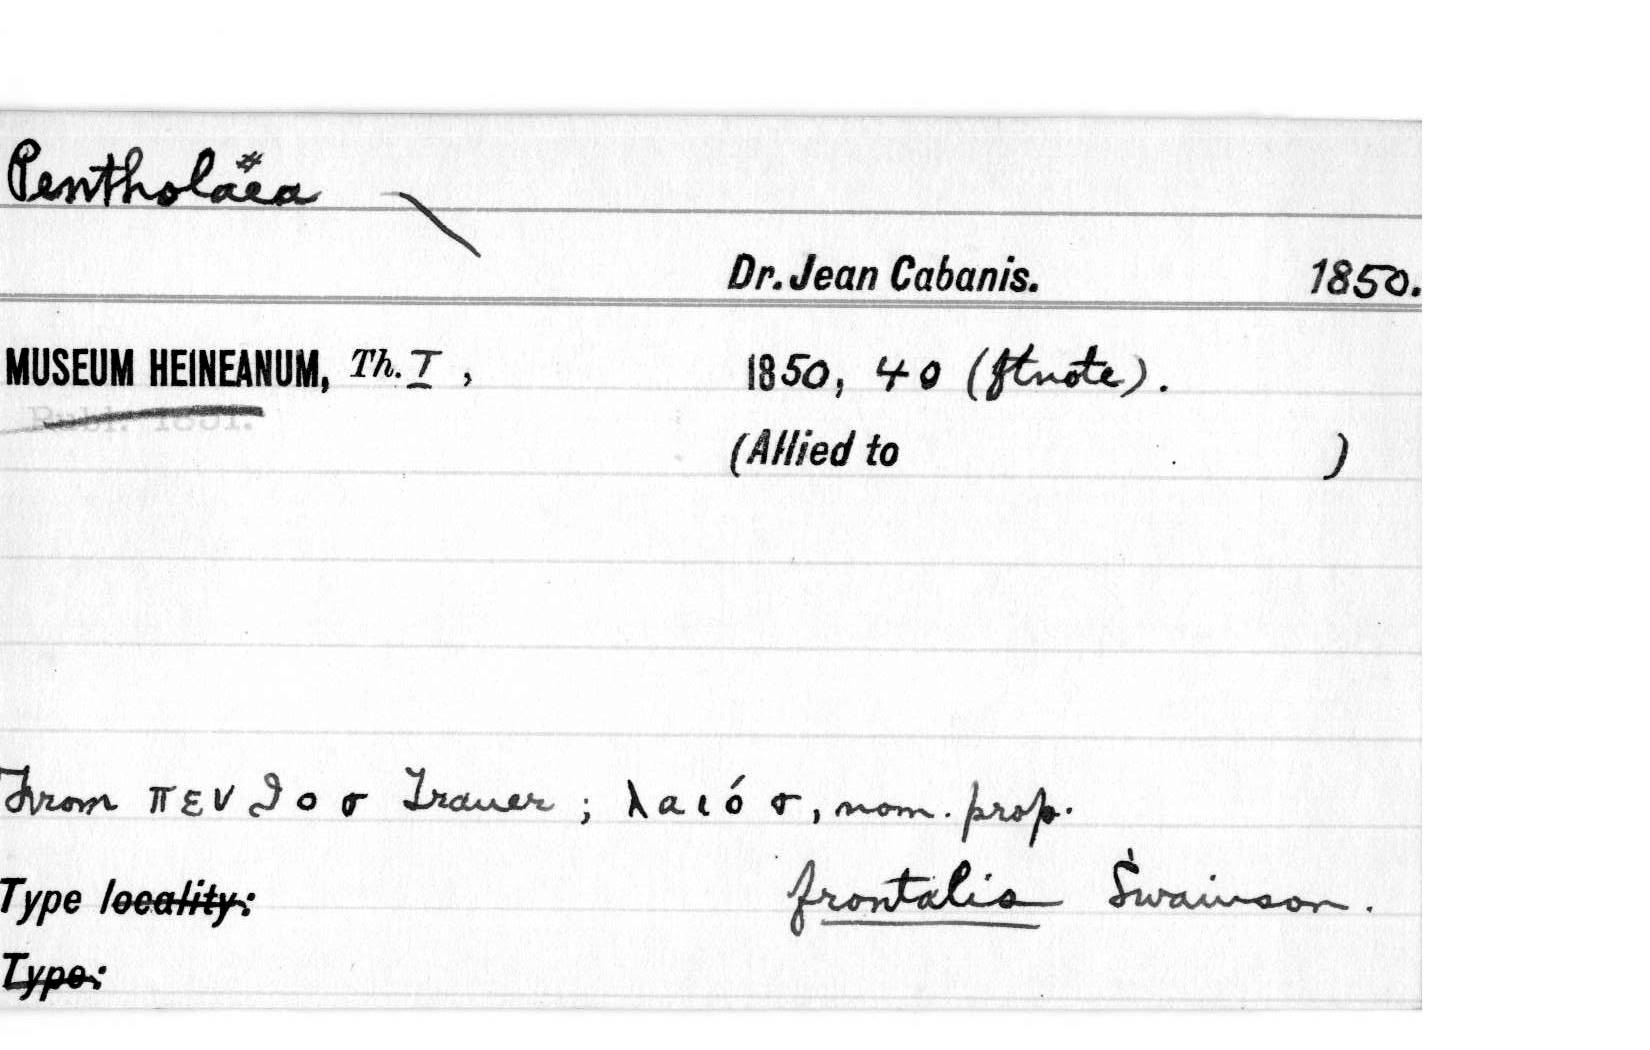 Pentholäea
Dr. Jean Cabanis. 1850.
MUSEUM HEINEANUM, Th. I, 1850, 40 (ftnote).
Publ. 1851.
(Allied to )
From πενθοσ Trauer; λαιόσ, nom. prop.
Type locality: frontalis Swainson.
Type: